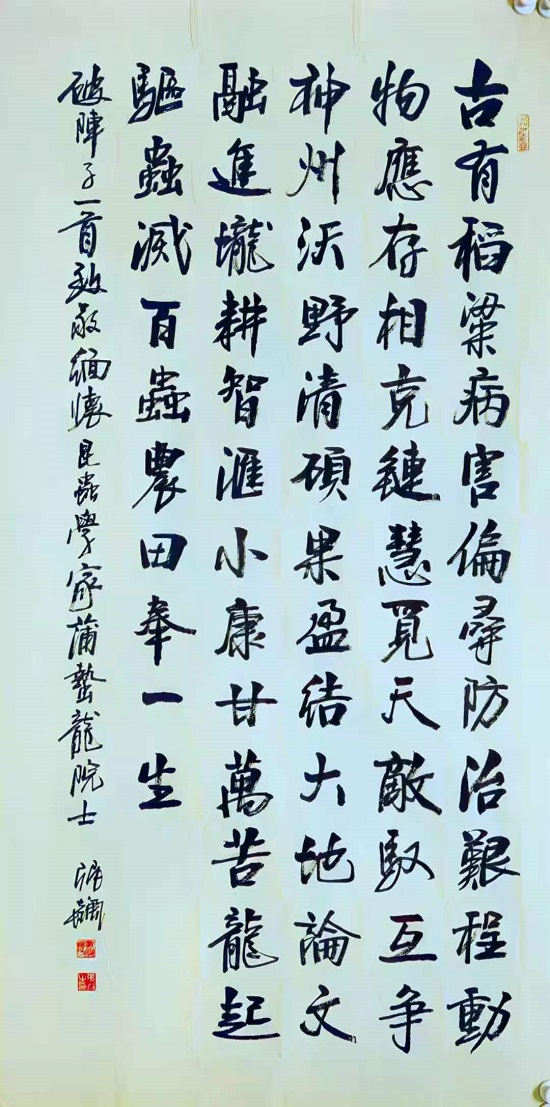 古有稻粱病害偏尋防治艱程動
物應存相克鏈慧覓天敵馭互争
神州沃野清碩果盈結大地論文
融進壠耕智滙小康甘萬苦龍起
驅蟲滅百蟲農田奉一生
破陣子一首致敬緬懷昆蟲學家蒲蟄龍院士